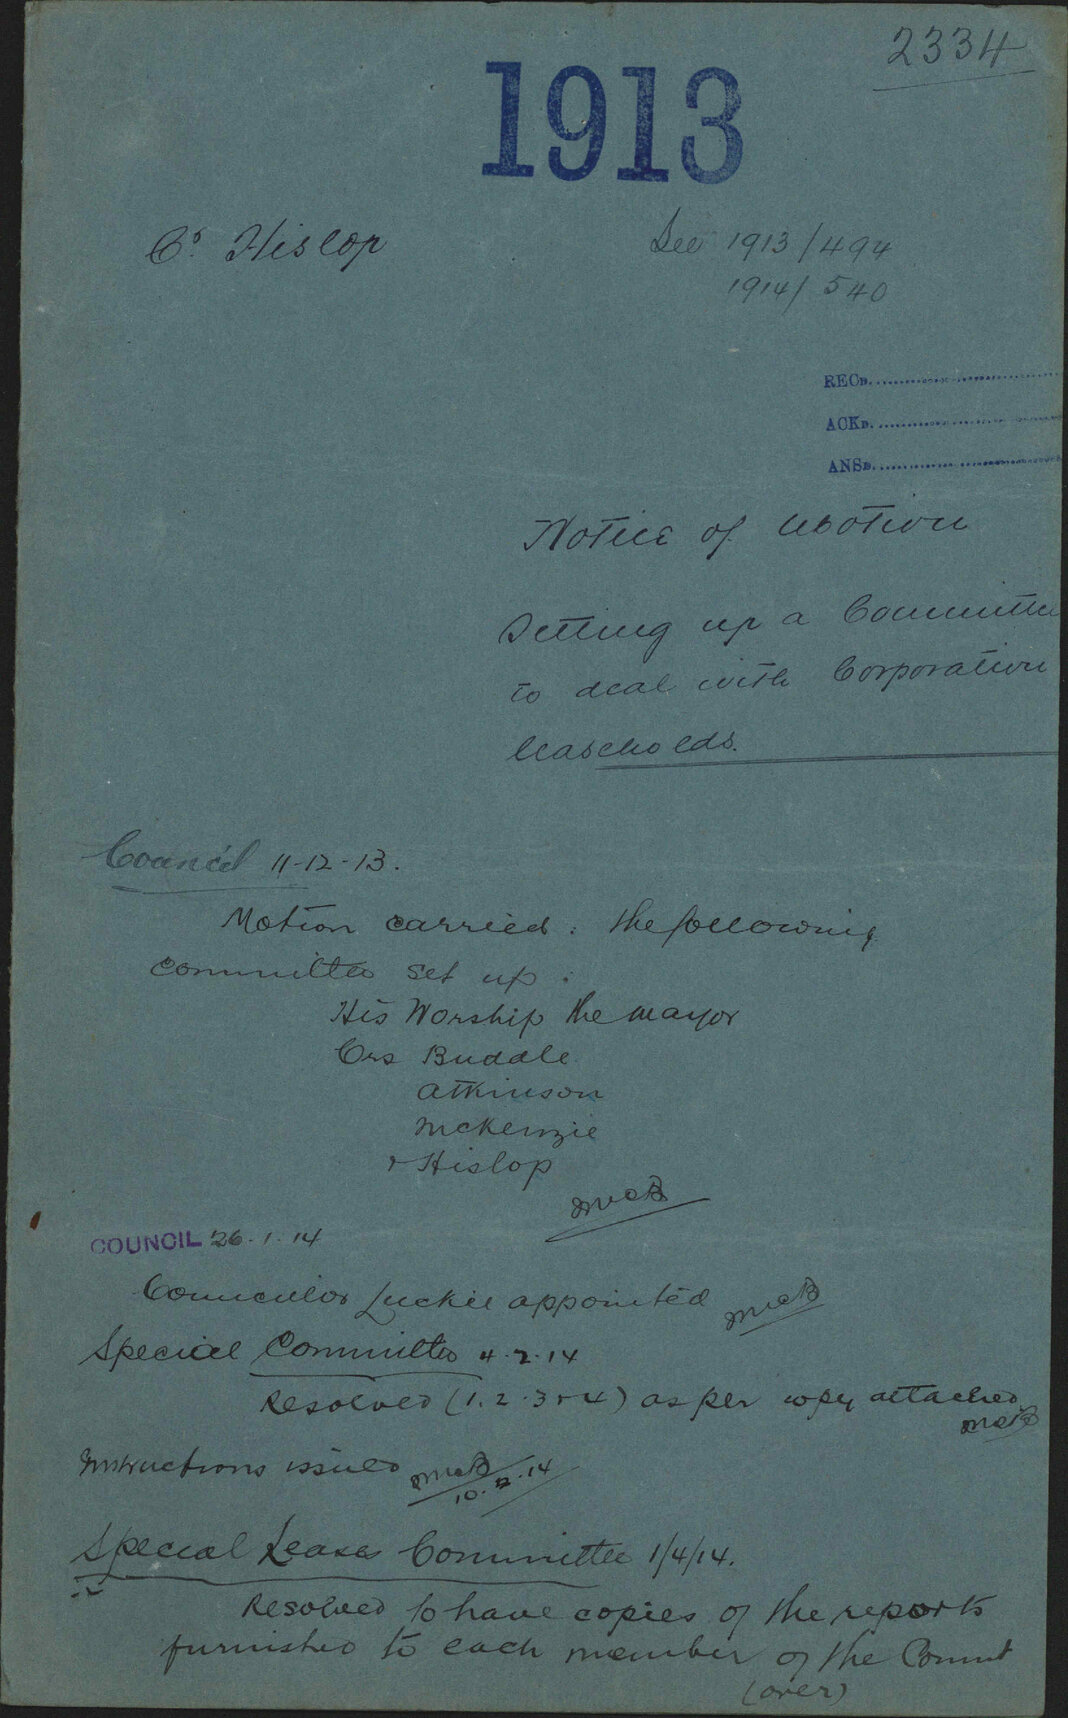 2334
1913
Cr. Hislop
See 1913/494
1914/540
RECD.
ACKD.
ANSD.
Notice of Motion
Setting up a Committee
to deal with Corporation
leaseholds.
Council 11-12-13.
Motion carried: the following
committee set up:
His Worship the Mayor
Crs Buddle
Atkinson
McKenzie
& Hislop
COUNCIL 26.1.14
Councillor Luckie appointed
Special Committee 4.2.14
Resolved (1.2.3 & 4) as per copy attached
Instructions issued
10.2.14
Special Leases Committee 1/4/14.
Resolved to have copies of the reports
furnished to each member of the Commt
(over)